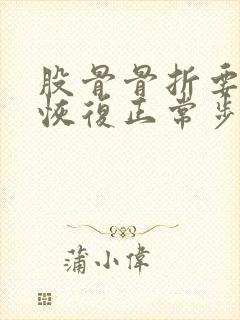 股骨骨折要
恢復正常步
蒲小偉